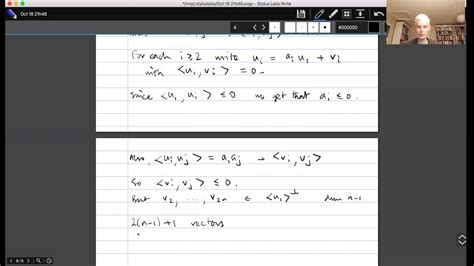 */tmp/.styluslabs/Oct 18 21h46.svgz - Stylus Labs Write
Oct 18 21h46
#000000
For each i≥2 write uᵢ = aᵢ u₁ + vᵢ
with <u₁, vᵢ> = 0.
Since <u₁, uᵢ> ≤ 0 we get that aᵢ ≤ 0.
Also, <uᵢ, uⱼ> = aᵢaⱼ + <vᵢ, vⱼ>
So <vᵢ, vⱼ> ≤ 0.
But v₂, ..., v₂ₙ ∈ <u₁>^⊥ dim n-1
2(n-1)+1 vectors